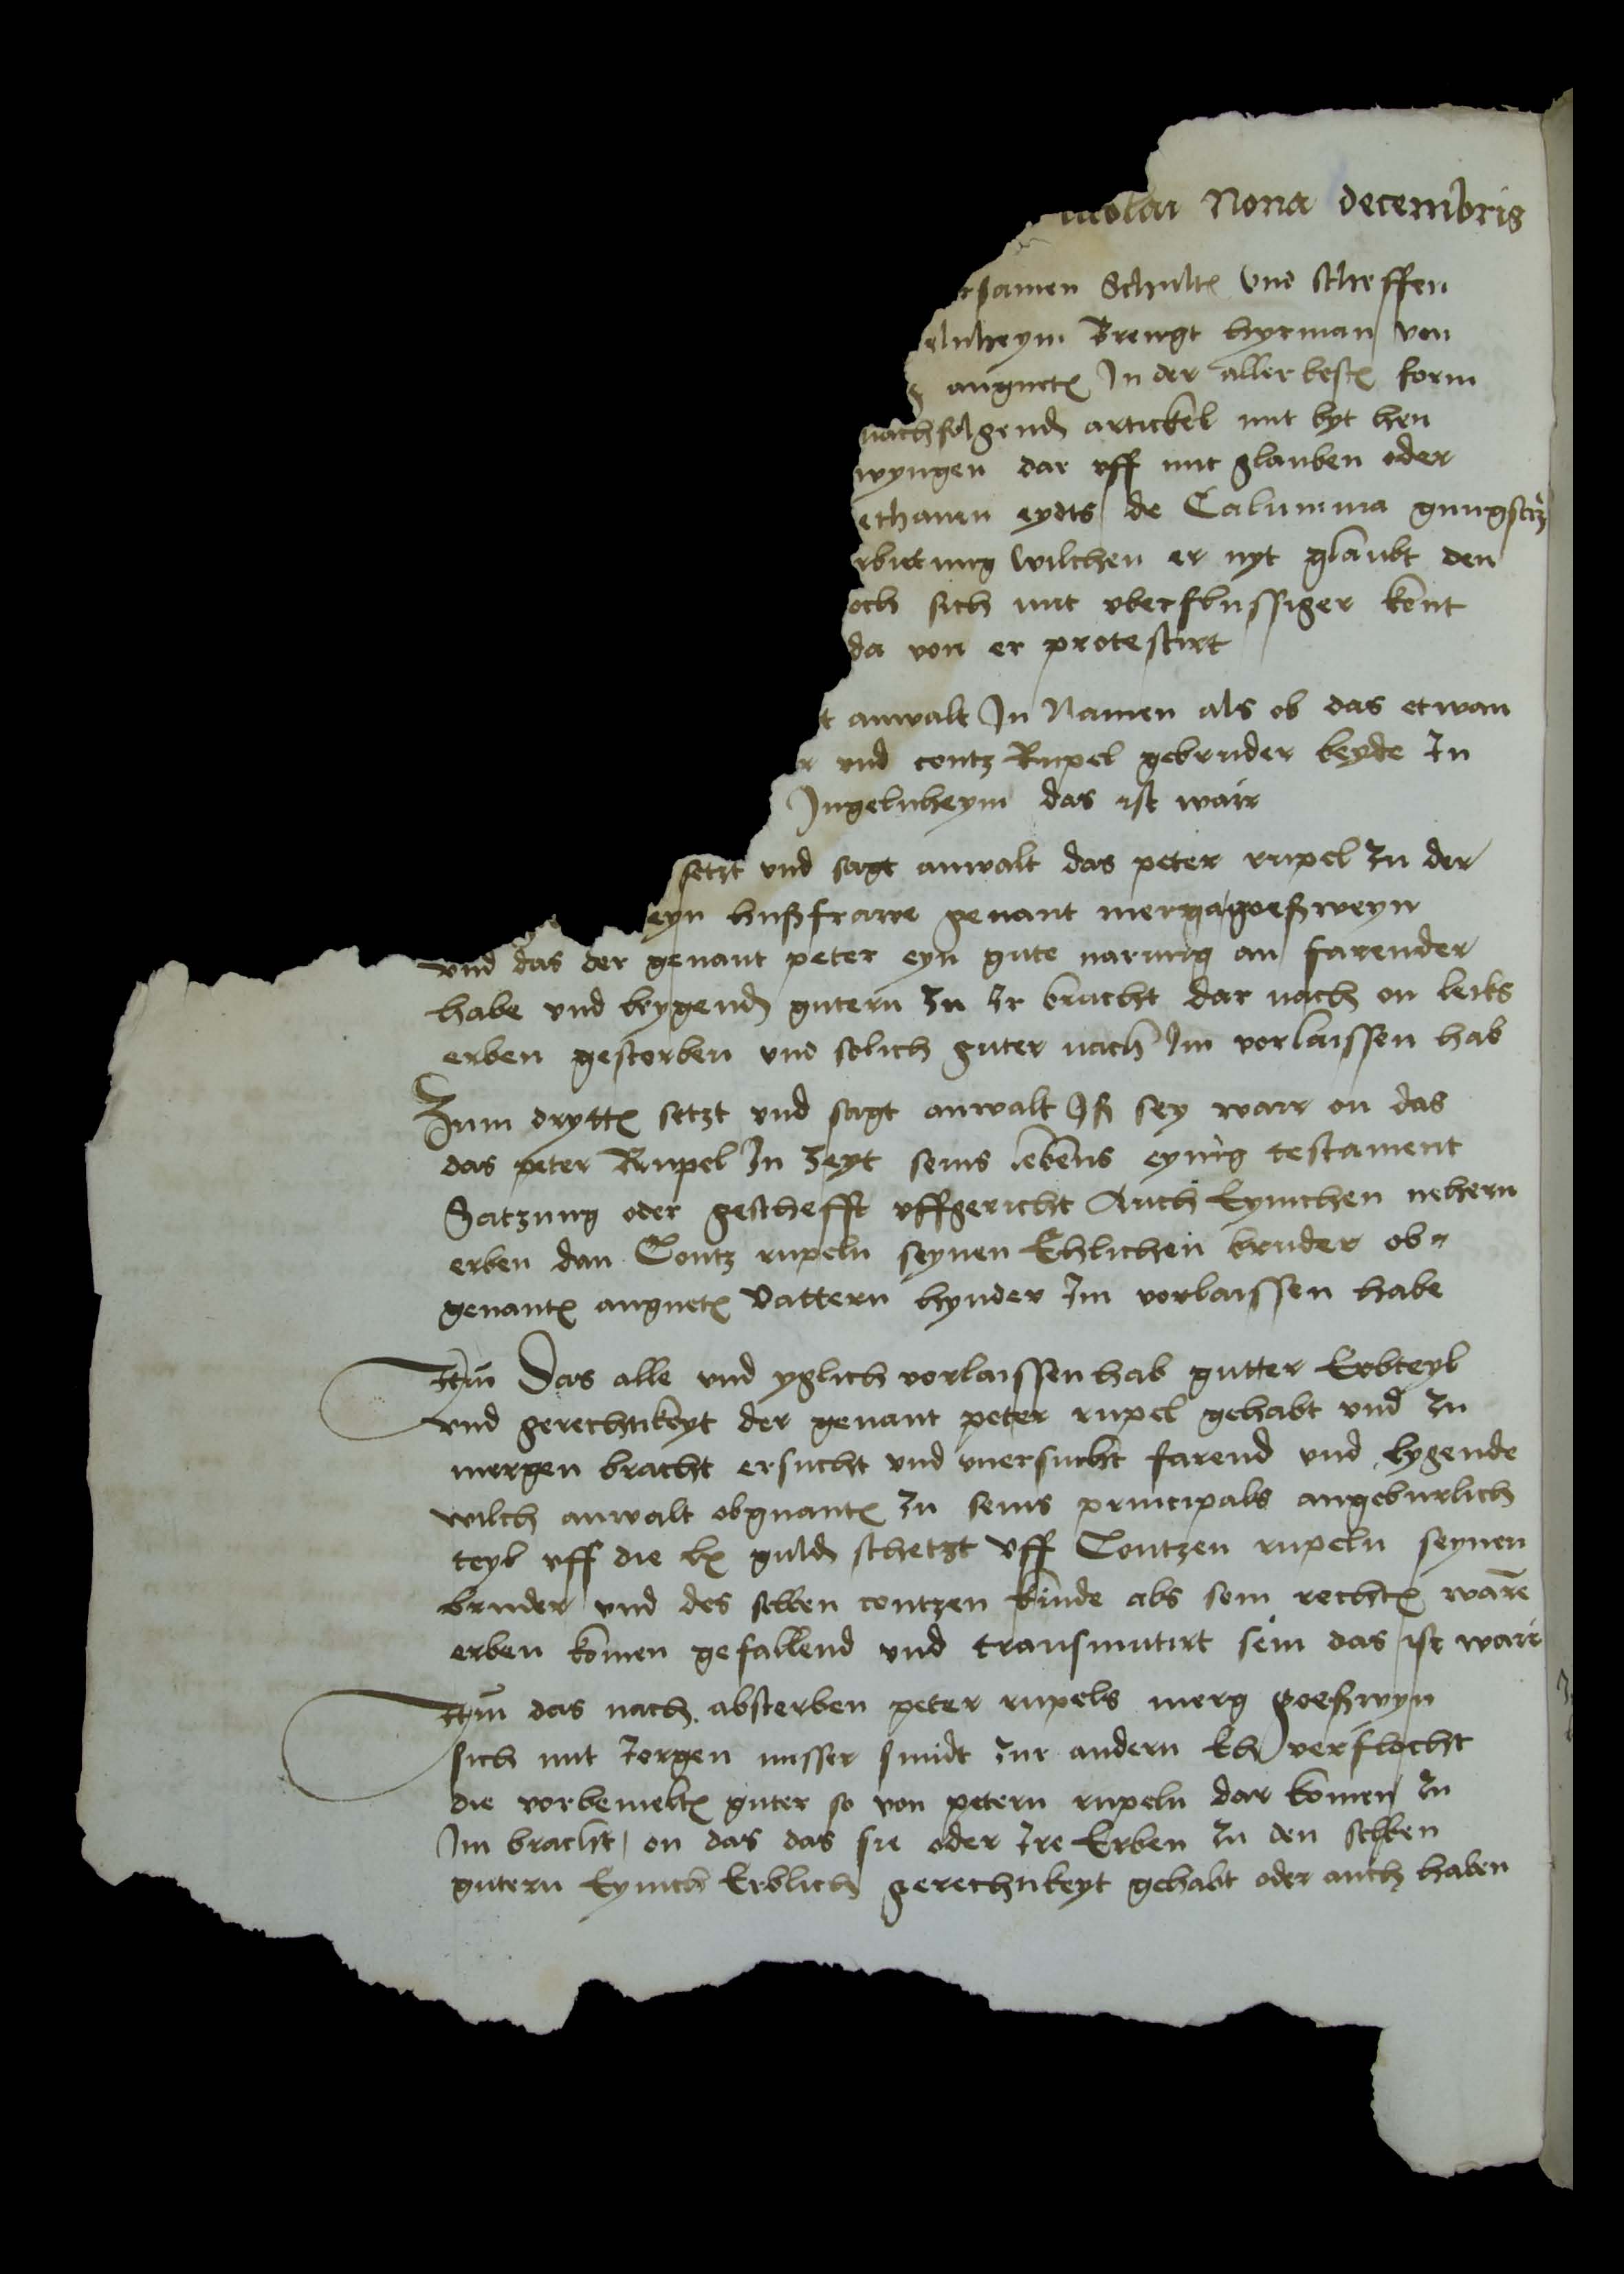 nicolai Nona decembris
rsamen Schulten vnd scheffen
elnheym Brengt hyrman von
angneten In der aller besten form
nachfolgend artickel mit byt hen
wyngen dar vff mit glauben oder
ethanen eydts de Calumnia gnugsam
rbittung wilchen er nyt glaubt den
och sich mit vberflussiger kent
da von er protestirt
t anwalt In Namen als ob das etwan
r vnd contz Rupel gebruder beyde In
Ingelnheym das ist wair
setzt vnd sagt anwalt das peter rupel zu der
eyn hußfrawe genant merga goeßweyn
vnd das der genant peter eyn gute narung an farender
habe vnd lygend gutern zu Ir bracht dar nach on leibs
erben gestorben vnd solich guter nach Im vorlaissen hab
Zum drytten setzt vnd sagt anwalt Iß sey wair on das
das peter Rupel In zeyt seins lebens eynig testament
Satzung oder geschefft vffgericht Auch Eynichen nehern
erben dan Contz rupeln seynen Ehlichen bruder ob-
genanten angneten Vattern hynder Im vorlaissen habe
Item Das alle vnd yglich vorlaissen hab gutter Erbteyl
vnd gerechtikeyt der genant peter rupel gehabt vnd zu
mergen bracht ersucht vnd vnersucht farend vnd lygende
wilch anwalt obgnanten zu seins principals angeburlich
teyl vff die lx guld schetzt vff Contzen rupeln seynen
bruder vnd des selben contzen kinde als sein rechten ware
erben komen gefallend vnd transmitirt sein das ist wair
Item das nach absterben peter rupels merg goeßwyn
sich mit Jorgen messer smidt zur andern Eh verflocht
die vorbemelten guter so von petern rupeln dar komen zu
Im bracht on das das sie oder Ire Erben zu den selben
gutern Eynich Erblich gerechtikeyt gehabt oder auch haben